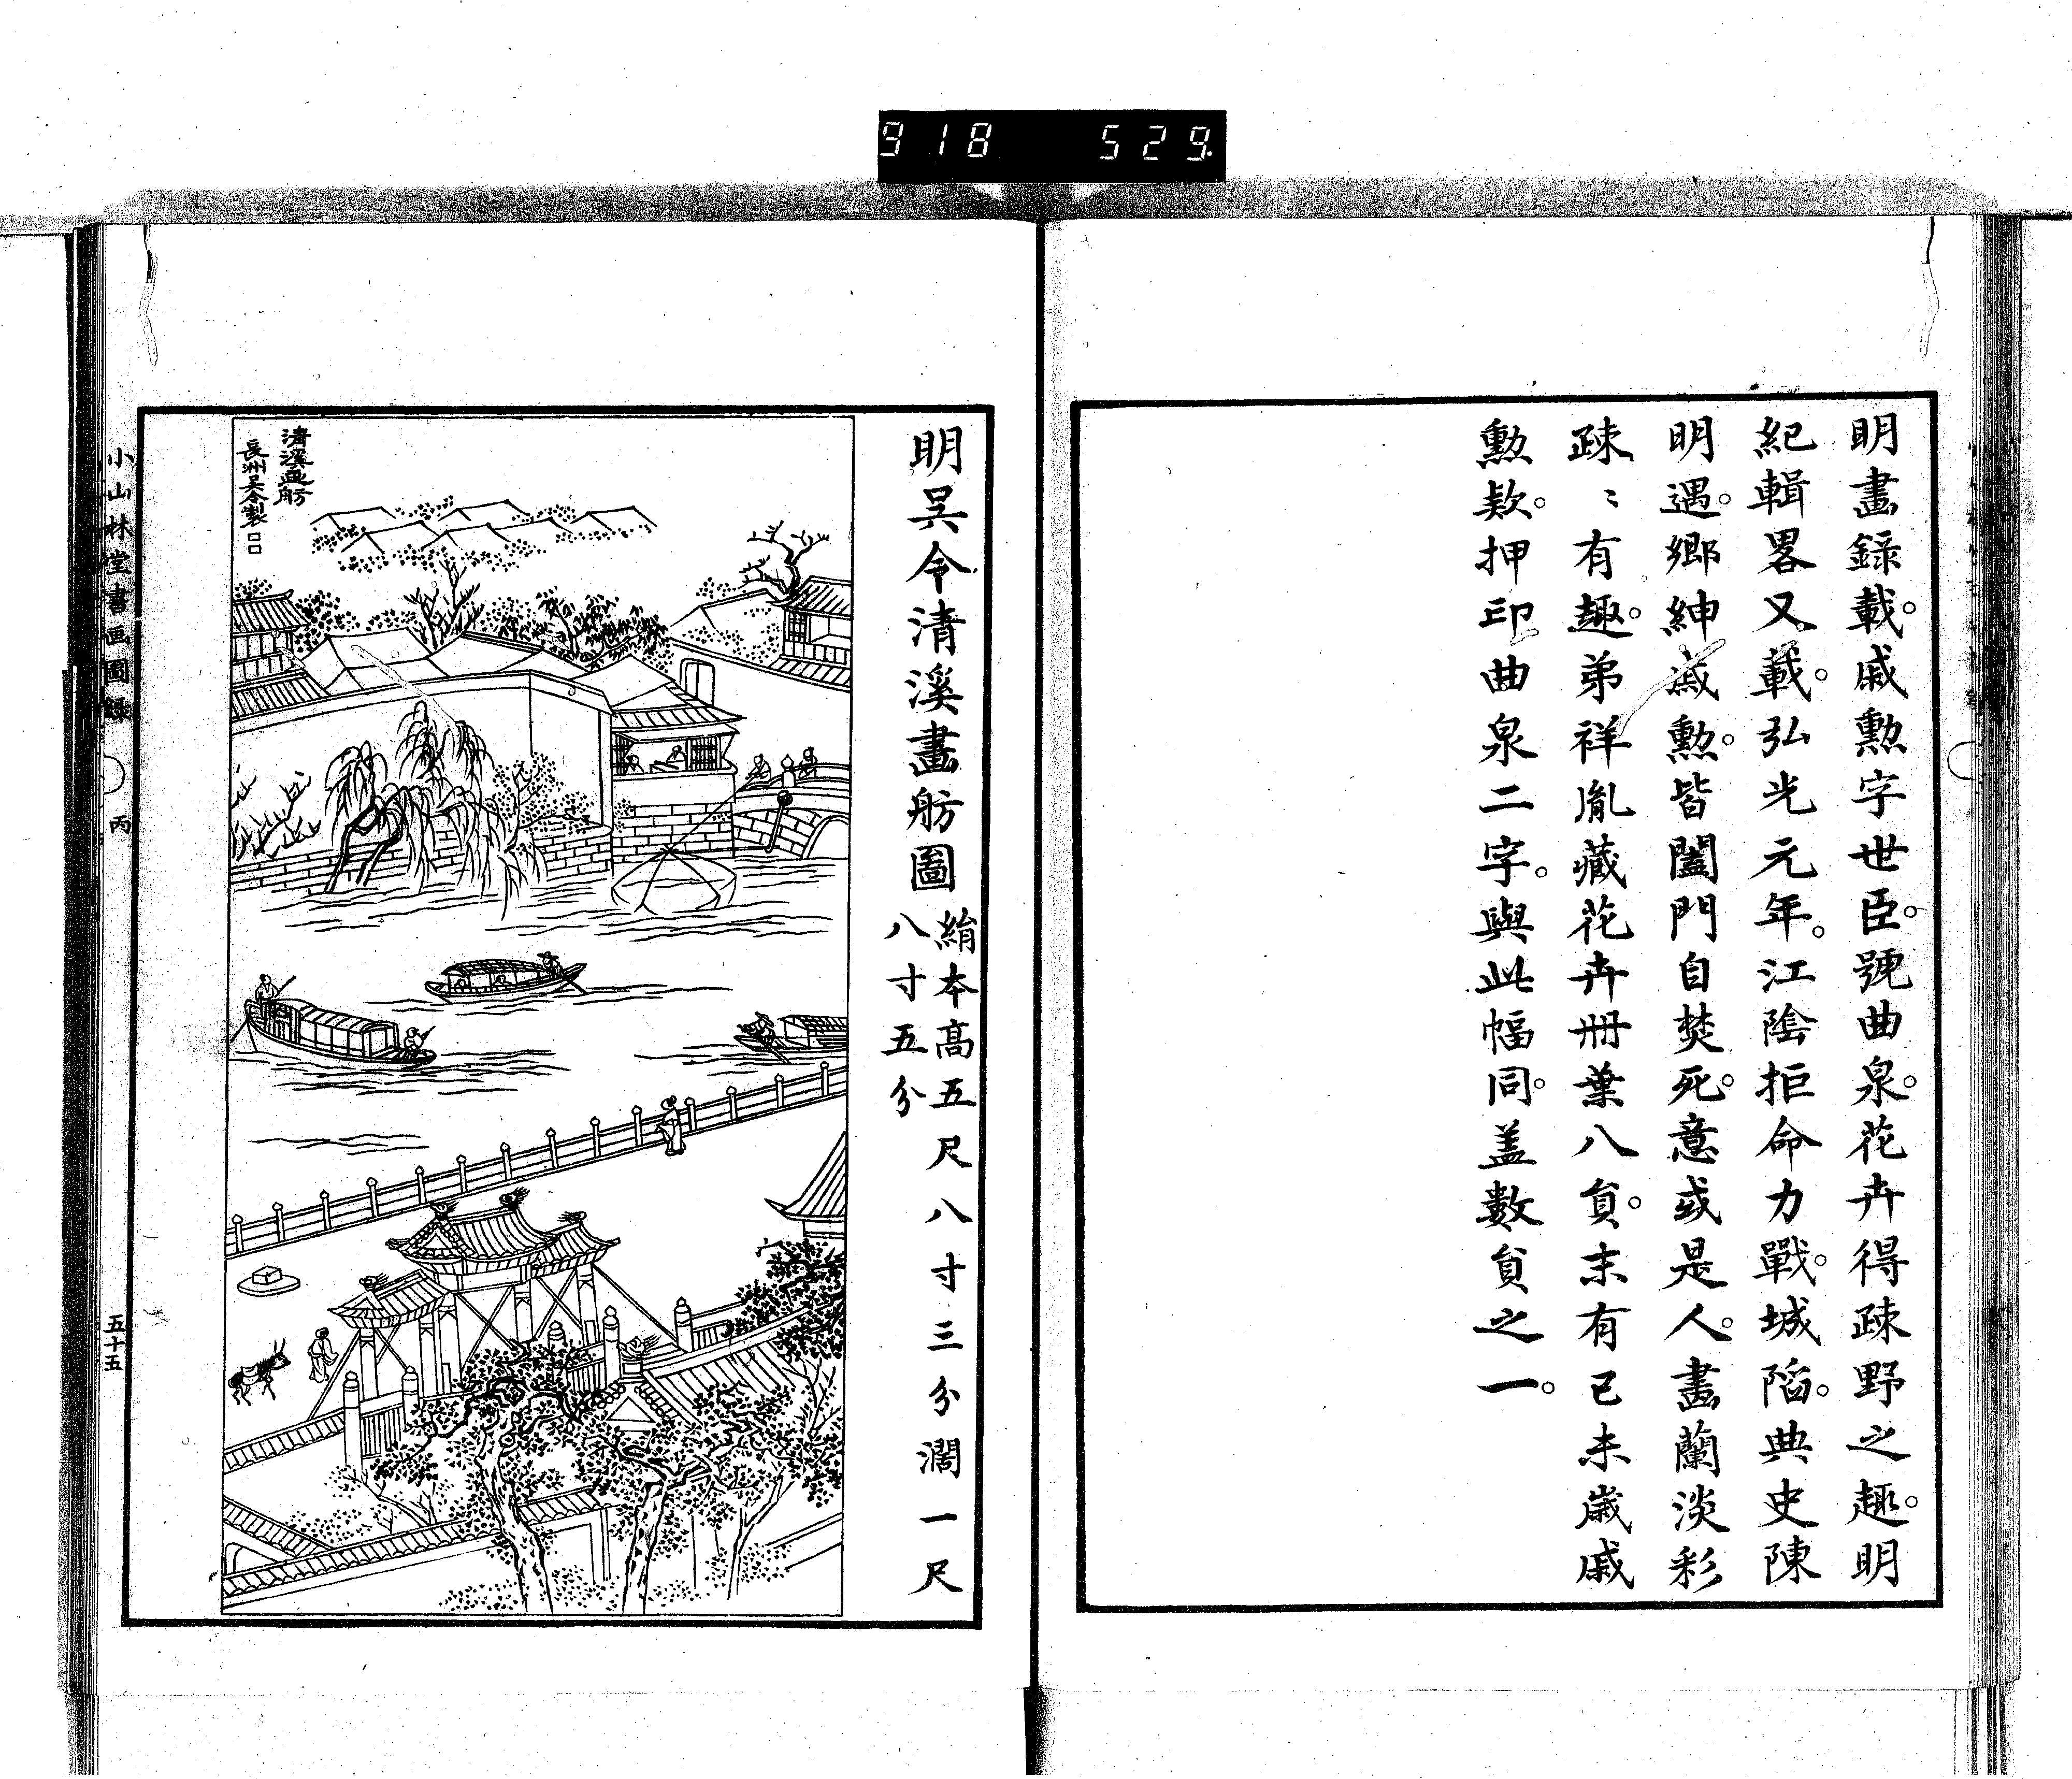 918 529
明畫錄載。戚勲字世臣。號曲泉。花卉得疎野之趣。明
紀輯畧又載。弘光元年。江陰拒命力戰。城陷。典史陳
明遇。鄉紳戚勲。皆闔門自焚死。意或是人。畫蘭淡彩
疎〻有趣。弟祥胤藏花卉冊葉八負。末有己未歲戚
勲款。押印曲泉二字。與此幅同。盖數負之一。
明吴令清溪畫舫圖
絹本高五尺八寸三分濶一尺
八寸五分
清溪畫舫
長洲吴令製
小山林堂書画圖錄
丙
五十五